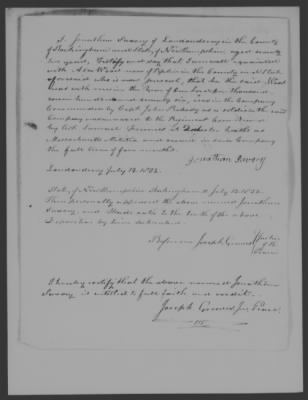 I Jonathan Savory of Londonderry in the County
of Rockingham and State of Newhampshire aged seventy
two years, Testify and say that I am well acquainted
with Asa Wood now of in the County and State
aforesaid who is now present, that he the said Wood
was with me in the Year of our Lord one thousand
seven hundred and seventy six, was in the Company
Commanded by Capt John Peabody as a soldier the said
Company was annexed to the Regiment
by Col Samuel at as
Massachusetts Militia and served in said Company
the full term of four months.
Jonathan Savory
Londonderry July 12. 1832.
State of Newhampshire Rockingham ss July 12. 1832.
Then personally appeared the above named Jonathan
Savory, and Made oath to the truth of the above
Deposition by him subscribed.
Before me Joseph Justice
of the
Peace
I hereby certify that the above named Jonathan
Savory is entitled to full faith and credit.
Joseph Jus Peace